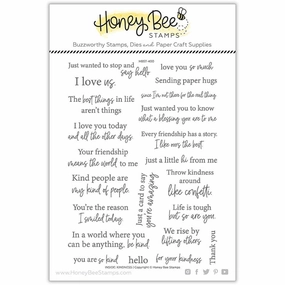 Honey Bee
STAMPS
Buzzworthy Stamps, Dies and Paper Craft Supplies
Just wanted to stop and
say hello
I love us.
The best things in life
aren't things
I love you today
and all the other days.
Your friendship
means the world to me
Kind people are
my kind of people.
You're the reason
I smiled today.
In a world where you
can be anything, be kind
you are so kind
hello
for your kindness.
Just a card to say
you're amazing
love you so much
Sending paper hugs
since I'm not there for the real thing.
Just wanted you to know
what a blessing you are to me
Every friendship has a story.
I like ours the best
just a little hi from me
Throw kindness
around
like confetti.
Life is tough
but so are you.
We rise by
lifting others
Thank you
www.HoneyBeeStamps.com